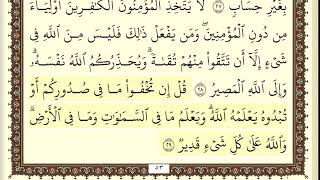 بِغَيْرِ حِسَابٍ ٢٧ لَا يَتَّخِذِ الْمُؤْمِنُونَ الْكَٰفِرِينَ أَوْلِيَآءَ
مِن دُونِ الْمُؤْمِنِينَ ۖ وَمَن يَفْعَلْ ذَٰلِكَ فَلَيْسَ مِنَ اللَّهِ فِي
شَىْءٍ إِلَّآ أَن تَتَّقُوا۟ مِنْهُمْ تُقَىٰةً ۗ وَيُحَذِّرُكُمُ اللَّهُ نَفْسَهُۥ ۗ
وَإِلَى اللَّهِ الْمَصِيرُ ٢٨ قُلْ إِن تُخْفُوا۟ مَا فِى صُدُورِكُمْ أَوْ
تُبْدُوهُ يَعْلَمْهُ اللَّهُ ۗ وَيَعْلَمُ مَا فِى السَّمَٰوَٰتِ وَمَا فِى الْأَرْضِ ۗ
وَاللَّهُ عَلَىٰ كُلِّ شَىْءٍ قَدِيرٌ ٢٩
٥٣